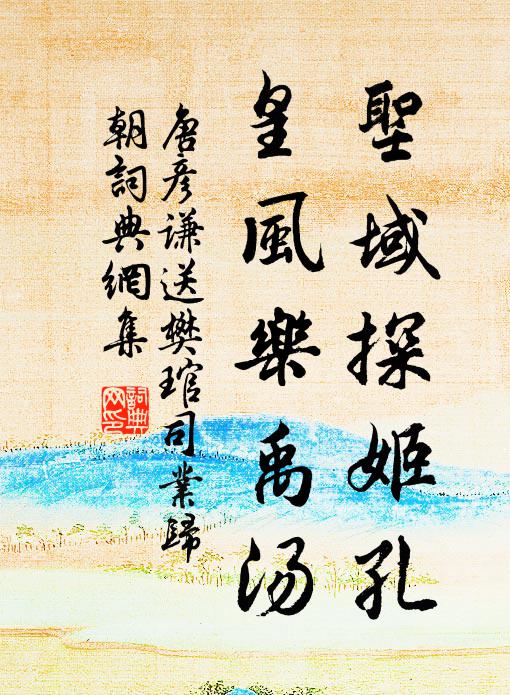 聖域探姬孔
皇風樂禹湯
唐彥謙送樊琯司業歸
朝詞典網集
詞典
网印